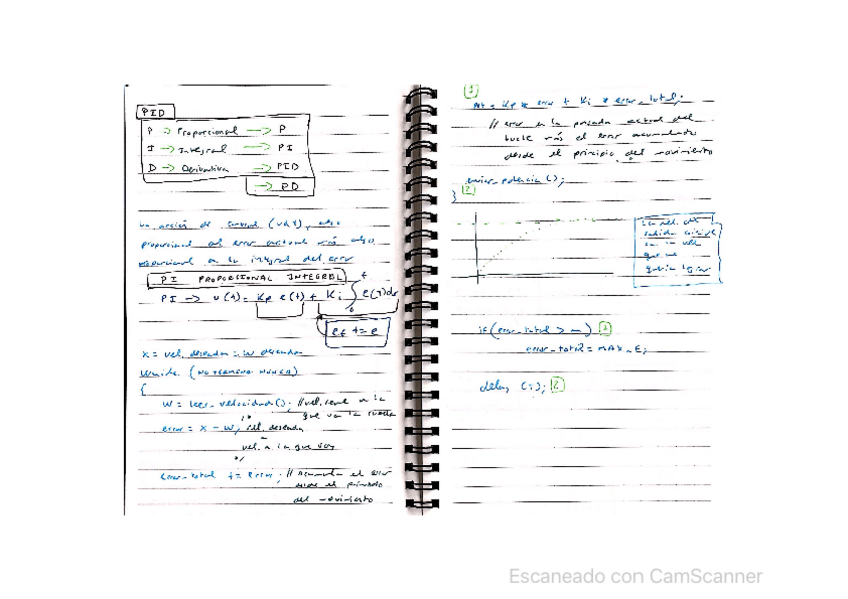 PID
P → Proporcional → P
I → Integral → PI
D → Derivativa → PID
→ PD
un acción de control (u(t)), algo
proporcional al error actual más algo
proporcional a la integral del error
PI PROPORSIONAL INTEGRAL
PI → u(t) = Kp e(t) + Ki ∫₀ᵗ e(τ)dτ
et += e
X = vel. deseada = W deseada
While (NO TERMINO NUNCA)
{
W = leer_velocidad(); //vel. real a la
que va la rueda
error = X - W; /* vel. deseada
-
vel. a la que voy
*/
error_total += error; // Acumula el error
desde el principio
del movimiento
1
Pot = Kp * error + Ki * error_total;
// error en la pasada actual del
bucle más el error acumulado
desde el principio del movimiento
enviar_potencia();
} 2
La vel. de
salida
la vel
que
quería lograr
if (error_total > m) 1
error_total = MAX_E;
delay (); 2
Escaneado con CamScanner